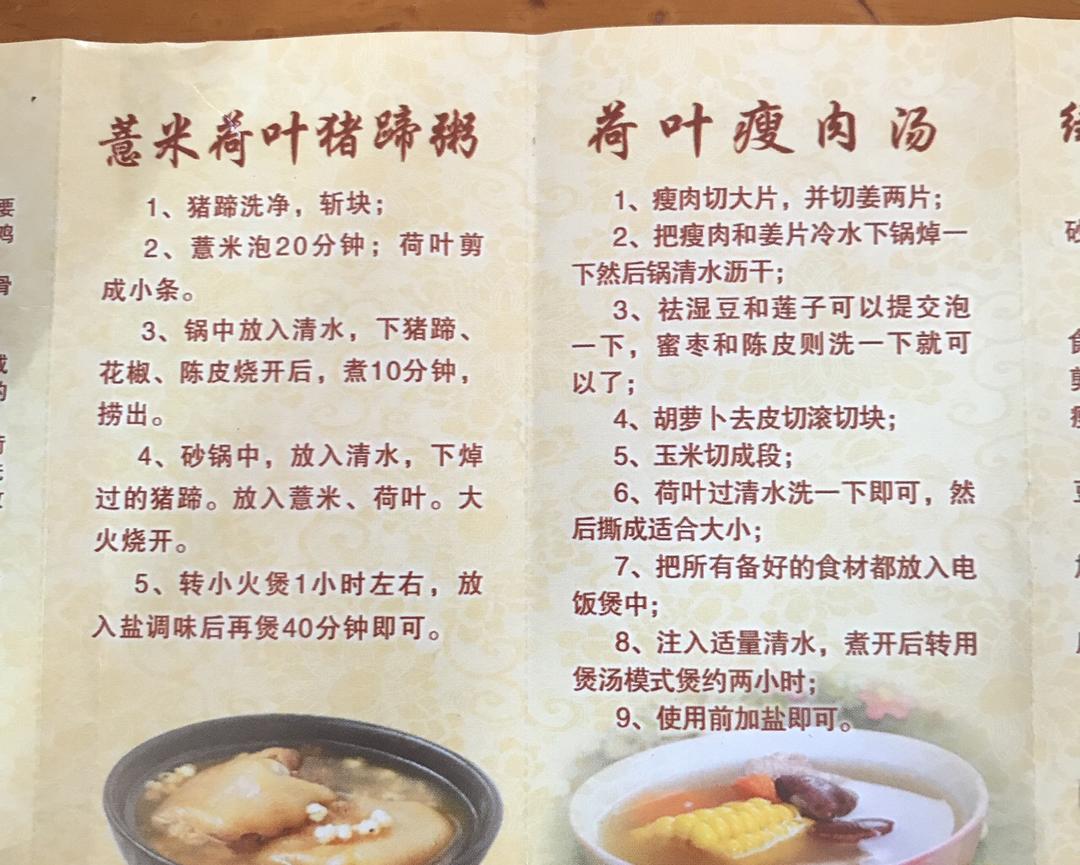 薏米荷叶猪蹄粥
1、猪蹄洗净，斩块；
2、薏米泡20分钟；荷叶剪
成小条。
3、锅中放入清水，下猪蹄、
花椒、陈皮烧开后，煮10分钟，
捞出。
4、砂锅中，放入清水，下焯
过的猪蹄。放入薏米、荷叶。大
火烧开。
5、转小火煲1小时左右，放
入盐调味后再煲40分钟即可。
荷叶瘦肉汤
1、瘦肉切大片，并切姜两片；
2、把瘦肉和姜片冷水下锅焯一
下然后锅清水沥干；
3、祛湿豆和莲子可以提交泡
一下，蜜枣和陈皮则洗一下就可
以了；
4、胡萝卜去皮切滚切块；
5、玉米切成段；
6、荷叶过清水洗一下即可，然
后撕成适合大小；
7、把所有备好的食材都放入电
饭煲中；
8、注入适量清水，煮开后转用
煲汤模式煲约两小时；
9、使用前加盐即可。